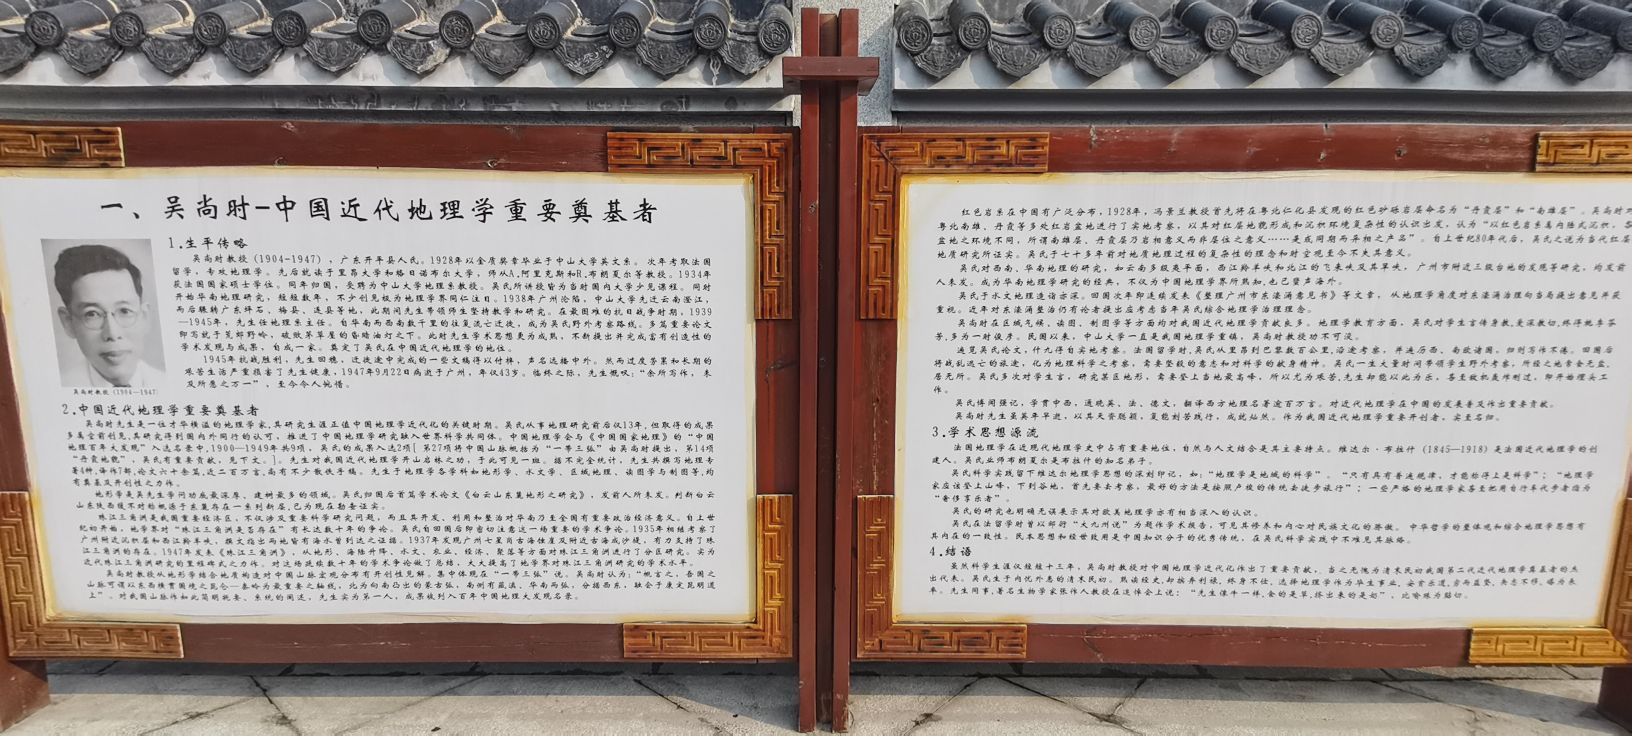 一、吴尚时-中国近代地理学重要奠基者
1.生平传略
吴尚时教授(1904-1947),广东开平县人民。1928年以金质奖章毕业于中山大学英文系。次年考取法国
留学,专攻地理学。先后就读于里昂大学和格日诺布尔大学,师从A.阿里克斯和R.布朗夏尔等教授。1934年
获法国国家硕士学位。同年归国,受聘为中山大学地理系教授。吴氏所讲授皆为当时国内大学少见课程。同时
开始华南地理研究,短短数年,不少创见极为地理学界同仁注目。1938年广州沦陷,中山大学先迁云南澄江,
而后辗转广东坪石,梅县,连县等地,此期间先生带领师生坚持教学和研究。在最困难的抗日战争时期,1939
—1945年,先生任地理系主任。自华南而西南数千里的往复流亡迁徙,成为吴氏野外考察路线。多篇重要论文
即写就于荒郊野岭,破败茅草屋的昏暗油灯之下。此时先生学术思想更为成熟,不断提出并完成富有创造性的
学术发现与成果,自成一家。奠定了吴氏在中国近代地理学的地位。
1945年抗战胜利,先生回穗,迁徙途中完成的一些文稿得以付梓,声名远播中外。然而过度劳累和长期的
艰苦生活严重损害了先生健康,1947年9月22日病逝于广州,年仅43岁。临终之际,先生慨叹:“余所写作,未
及所急之万一”,至今令人惋惜。
吴尚时教授(1904—1947)
2.中国近代地理学重要奠基者
吴尚时先生是一位才华横溢的地理学家,其研究生涯正值中国地理学近代化的关键时期。吴氏从事地理研究前后仅13年,但取得的成果
多属空前创见,其研究得到国内外同行的认可,推进了中国地理学研究融入世界科学共同体。中国地理学会与《中国国家地理》的“中国
地理百年大发现”入选名录中,1900—1949年共9项,吴氏的成果入选2项[第27项将中国山脉概括为“一带三弧”由吴尚时提出,第14项
“丹霞地貌”,吴氏有重要贡献,见下文。]。先生对我国近代地理学开山启林之功,于此可见一斑。据不完全统计,先生共撰写地理专
著4种,译作7部,论文六十余篇,近二百万言,尚有不少散佚手稿。先生于地理学各学科如地形学、水文学、区域地理、读图学与制图等,均
有奠基及开创性之力作。
地形学是吴先生学问功底最深厚、建树最多的领域。吴氏归国后首篇学术论文《白云山东麓地形之研究》,发前人所未发。判断白云
山东狭西缓不对称根源于东麓存在一系列断层,已为现在勘查证实。
珠江三角洲是我国重要经济区,不仅涉及重要科学研究问题,而且其开发、利用和整治对华南乃至全国有重要政治经济意义。自上世
纪初开始,地学界对“珠江三角洲是否存在”有长达数十年的争论。吴氏自回国后即密切注意这一场重要的学术争论。1935年相继考察了
广州附近沉积层和西江羚羊峡,撰文指出两地皆有海水曾到达之证据。1937年发现广州七星岗古海蚀崖及附近古海成沙堤,有力支持了珠
江三角洲的存在。1947年发表《珠江三角洲》,从地形、海陆升降、水文、农业、经济、聚落等方面对珠江三角洲进行了分区研究。实为
近代珠江三角洲研究的里程碑式之力作。对这场延续数十年的学术争论做了总结,大大提高了地学界对珠江三角洲研究的学术水平。
吴尚时教授从地形学结合地质构造对中国山脉宏观分布有开创性见解。集中体现在“一带三弧”说。吴尚时认为:“概言之,吾国之
山脉可谓以东西横贯国境之昆仑—秦岭为最重要之轴线,北为向南凸出的蒙古弧,南则有藏滇、华南两弧,分据西东,融会于康定昆明道
上”。对我国山脉作如此简明扼要、系统的阐述,先生实为第一人,成果被列入百年中国地理大发现名录。
红色岩系在中国有广泛分布,1928年,冯景兰教授首先将在粤北仁化县发现的红色砂砾岩层命名为“丹霞层”和“南雄层”。吴尚时对
粤北南雄、丹霞等多处红岩盆地进行了实地考察,以其对红层地貌形成和沉积环境复杂性的认识出发,认为“以红色岩系属内陆式沉积,各
盆地之环境不同,所谓南雄层、丹霞层乃岩相意义而非层位之意义……是或同期而异相之产品”。自上世纪80年代后,吴氏之说为当代红层
地质研究所证实。吴氏于七十多年前对地质地理过程的复杂性的理念和时空观至今不失其意义。
吴氏对西南、华南地理的研究,如云南多级夷平面,西江羚羊峡和北江的飞来峡及其旱峡,广州市附近三级台地的发现等研究,均发前
人未发。成为华南地理学研究的经典,不仅为中国地理学界所熟知,也已蜚声海外。
吴氏于水文地理造诣亦深。回国次年即连续发表《整理广州市东濠涌意见书》等文章,从地理学角度对东濠涌治理向当局提出意见并获
重视。近年对东濠涌整治仍有论者提出应考虑当年吴氏综合地理学治理理念。
吴尚时在区域气候、读图、制图学等方面均对我国近代地理学贡献良多。地理学教育方面,吴氏对学生言传身教,爱深教切,终得桃李芬
芳,多为一时俊彦。民国以来,中山大学一直是我国地理学重镇,吴尚时教授功不可没。
遍览吴氏论文,什九得自实地考察。法国留学时,吴氏从里昂到巴黎数百公里,沿途考察,并遍历西、南欧诸国,归则写作不倦。回国后
将战乱逃亡的旅途,化为地理科学之考察,需要坚毅的意志和对科学的献身精神。吴氏一生大量时间带领学生野外考察,所经之地常食无盐,
居无所。吴氏多次对学生言,研究某区地形,需要登上当地最高峰,所以尤为艰苦,先生却能以此为乐,甚至敌机轰炸刚过,即开始埋头工
作。
吴氏博闻强记,学贯中西,通晓英、法、德文,翻译西方地理名著逾百万言。对近代地理学在中国的发展普及作出重要贡献。
吴尚时先生虽英年早逝,以其天资聪颖,复能刻苦践行,成就灿然。作为我国近代地理学重要开创者,实至名归。
3.学术思想源流
法国地理学在近现代地理学史中占有重要地位,自然与人文结合是其主要特点。维达尔·布拉什(1845—1918)是法国近代地理学的创
建人。吴氏业师布朗夏尔是布拉什的知名弟子。
吴氏科学实践留下维达尔地理学思想的深刻印记,如:“地理学是地域的科学”,“只有具有普遍规律,才能标得上是科学”;“地理学
家应该登上山峰,下到谷地,首先要去考察,最好的方法是按照卢梭的传统去徒步旅行”;一些严格的地理学家甚至把用自行车代步者指为
“奢侈享乐者”。
吴氏的研究也明确无误展示其对欧美地理学亦有相当深入的认识。
吴氏在法留学时曾以邹衍“大九州说”为题作学术报告,可见其修养和内心对民族文化的骄傲。中华哲学的整体观和综合地理学思想有
其内在的一致性。民本思想和经世致用是中国知识分子的优秀传统,在吴氏科学实践中不难见其脉略。
4.结语
虽然科学生涯仅短短十三年,吴尚时教授对中国地理学近代化作出了重要贡献,当之无愧为清末民初我国第二代近代地理学奠基者的杰
出代表。吴氏生于内忧外患的清末民初。熟读经史,却摈弃利禄,终身不仕,选择地理学作为毕生事业,安贫乐道,穷而益坚,矢志不移。堪为表
率。先生同事,著名生物学家张作人教授在追悼会上说:“先生像牛一样,食的是草,挤出来的是奶”,比喻殊为贴切。